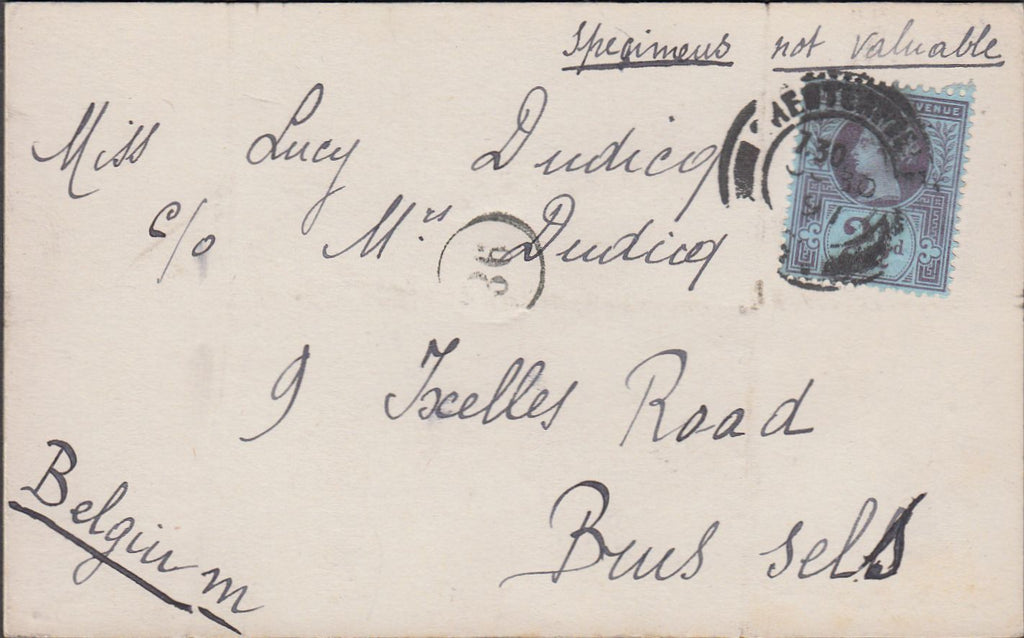 Specimens not valuable
Miss Lucy Dudicq
c/o Mrs Dudicq
9 Ixelles Road
Brussels
Belgium
36
7 30
VENUE
2
d